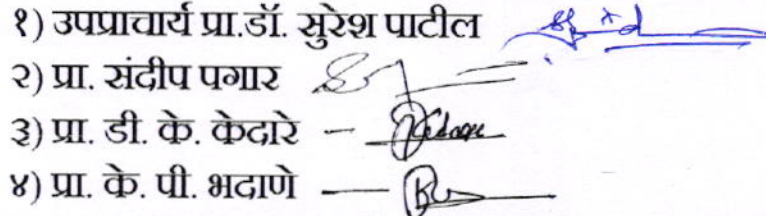 १) उपप्राचार्य प्रा.डॉ. सुरेश पाटील
२) प्रा. संदीप पगार
३) प्रा. डी. के. केदारे –
४) प्रा. के. पी. भदाणे —